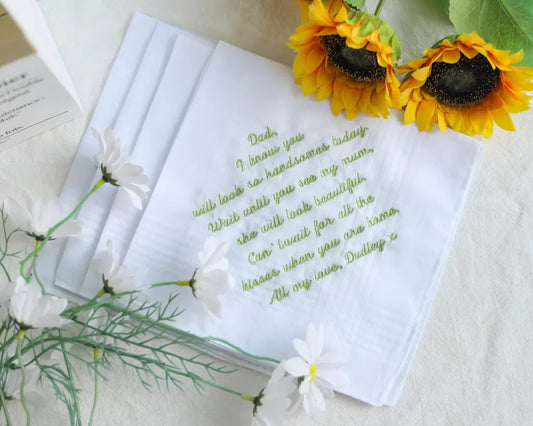 Dad,
I know you
will look so handsomes today
Wait until you see my mum,
she will look beautiful.
Can't wait for all the
kisses when you are home.
All my love, Dudley x